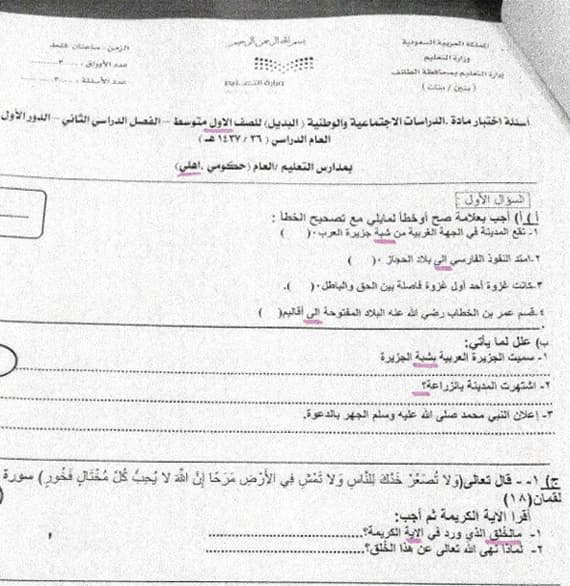 المملكة العربية السعودية
وزارة التعليم
إدارة التعليم بمحافظة الطائف
(بنين / بنات)
بسم الله الرحمن الرحيم
وزارة التعليم
الزمن:- ساعتان فقط
عدد الأوراق : ......٣.....
عدد الأسئلة : ......٣.....
أسئلة اختبار مادة .الدراسات الاجتماعية والوطنية ( البديل) للصف الاول متوسط – الفصل الدراسي الثاني – الدور الأول
العام الدراسي ( ٣٦ / ١٤٣٧ هـ )
بمدارس التعليم /العام (حكومي .اهلي)
السؤال الأول :
أ ) أ) أجب بعلامة صح أوخطأ لمايلي مع تصحيح الخطأ :
١- تقع المدينة في الجهة الغربية من شبة جزيرة العرب.( )
٢.امتد النفوذ الفارسي الي بلاد الحجاز .( )
٣.كانت غزوة أحد أول غزوة فاصلة بين الحق والباطل.( ).
٤.قسم عمر بن الخطاب رضي الله عنه البلاد المفتوحة الى أقاليم( )
ب) علل لما يأتي:
١- سميت الجزيرة العربية بشبة الجزيرة
٢- اشتهرت المدينة بالزراعة؟
٣- إعلان النبي محمد صلى الله عليه وسلم الجهر بالدعوة.
ج) ١- - قال تعالى(وَلا تُصَعِّرْ خَدَّكَ لِلنَّاسِ وَلا تَمْشِ فِي الأَرْضِ مَرَحًا إِنَّ اللَّهَ لا يُحِبُّ كُلَّ مُخْتَالٍ فَخُورٍ) سورة
لقمان(١٨)
أقرا الاية الكريمة ثم أجب:
١- مالخلق الذي ورد في الاية الكريمة؟........................
٢- لماذا نهى الله تعالى عن هذا الخُلق؟........................